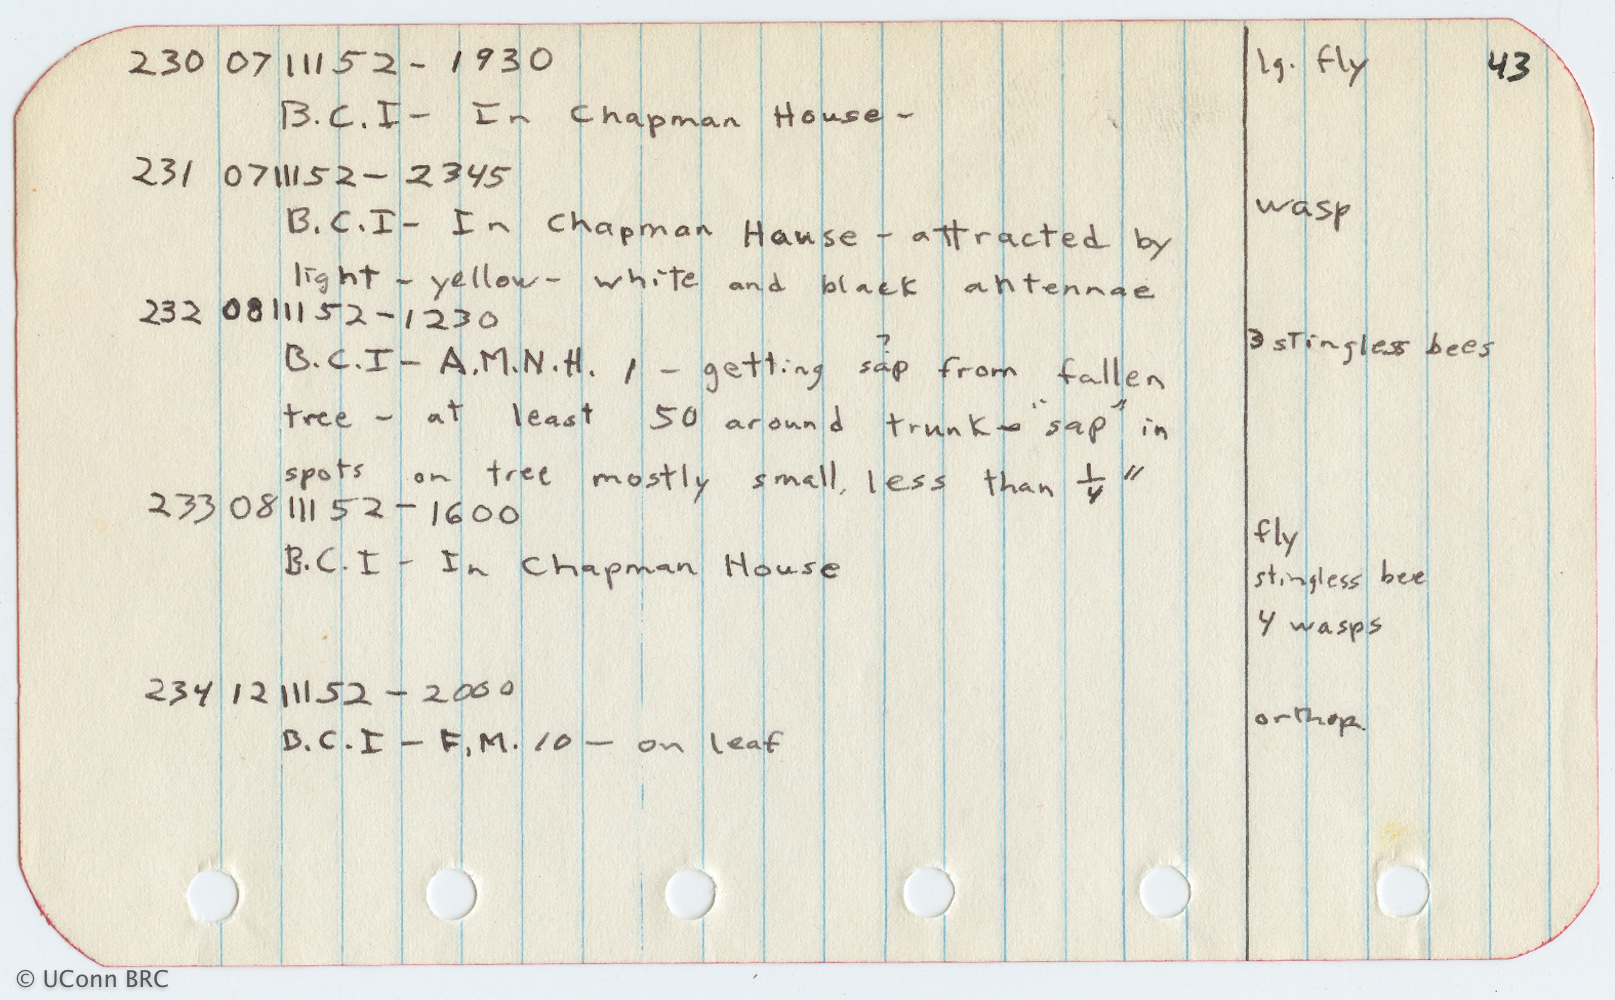 230 07111152 - 1930 lg. fly 43
B.C.I - In Chapman House -
231 07111152 - 2345
B.C.I - In Chapman House - attracted by wasp
light - yellow - white and black antennae
232 08111152 - 1230
B.C.I - A.M.N.H. 1 - getting sap? from fallen 3 stingless bees
tree - at least 50 around trunk - "sap" in
spots on tree mostly small, less than 1/4"
233 08111152 - 1600
B.C.I - In Chapman House
fly
stingless bee
4 wasps
234 12111152 - 2000
B.C.I - F.M. 10 - on leaf orthop.
© UConn BRC